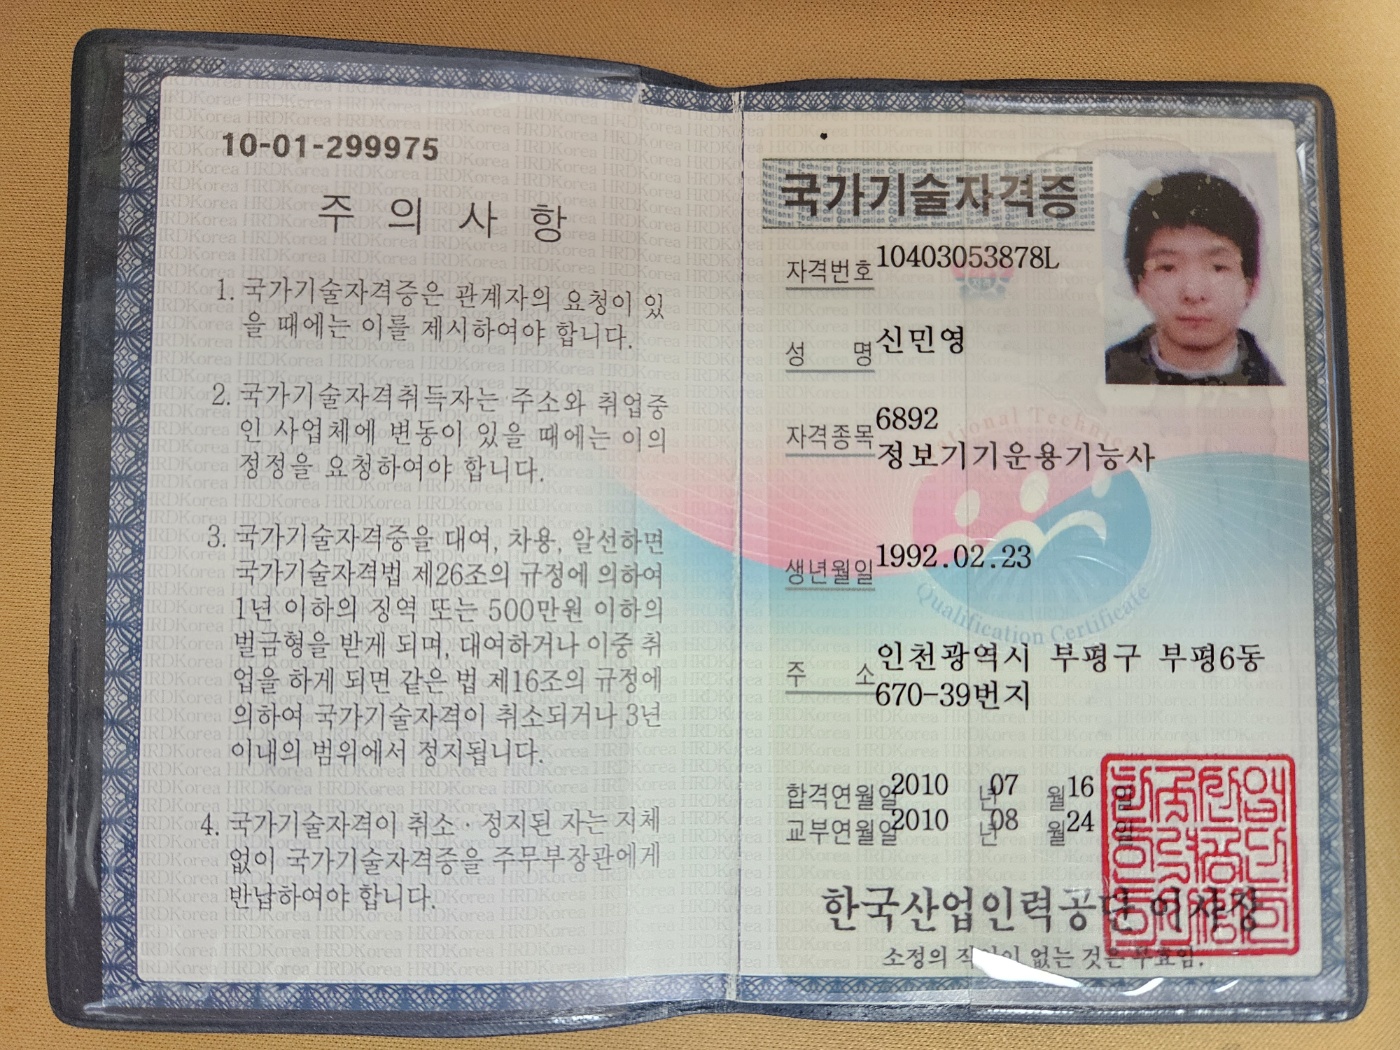 10-01-299975
주 의 사 항
1. 국가기술자격증은 관계자의 요청이 있
을 때에는 이를 제시하여야 합니다.
2. 국가기술자격취득자는 주소와 취업중
인 사업체에 변동이 있을 때에는 이의
정정을 요청하여야 합니다.
3. 국가기술자격증을 대여, 차용, 알선하면
국가기술자격법 제26조의 규정에 의하여
1년 이하의 징역 또는 500만원 이하의
벌금형을 받게 되며, 대여하거나 이중 취
업을 하게 되면 같은 법 제16조의 규정에
의하여 국가기술자격이 취소되거나 3년
이내의 범위에서 정지됩니다.
4. 국가기술자격이 취소·정지된 자는 지체
없이 국가기술자격증을 주무부장관에게
반납하여야 합니다.
국가기술자격증
자격번호 10403053878L
성 명 신민영
자격종목 6892
정보기기운용기능사
생년월일 1992.02.23
주 소 인천광역시 부평구 부평6동
670-39번지
합격연월일 2010 년 07 월 16 일
교부연월일 2010 년 08 월 24 일
한국산업인력공단 이사장
소정의 없는 것은 무효임.
Qualification Certificate